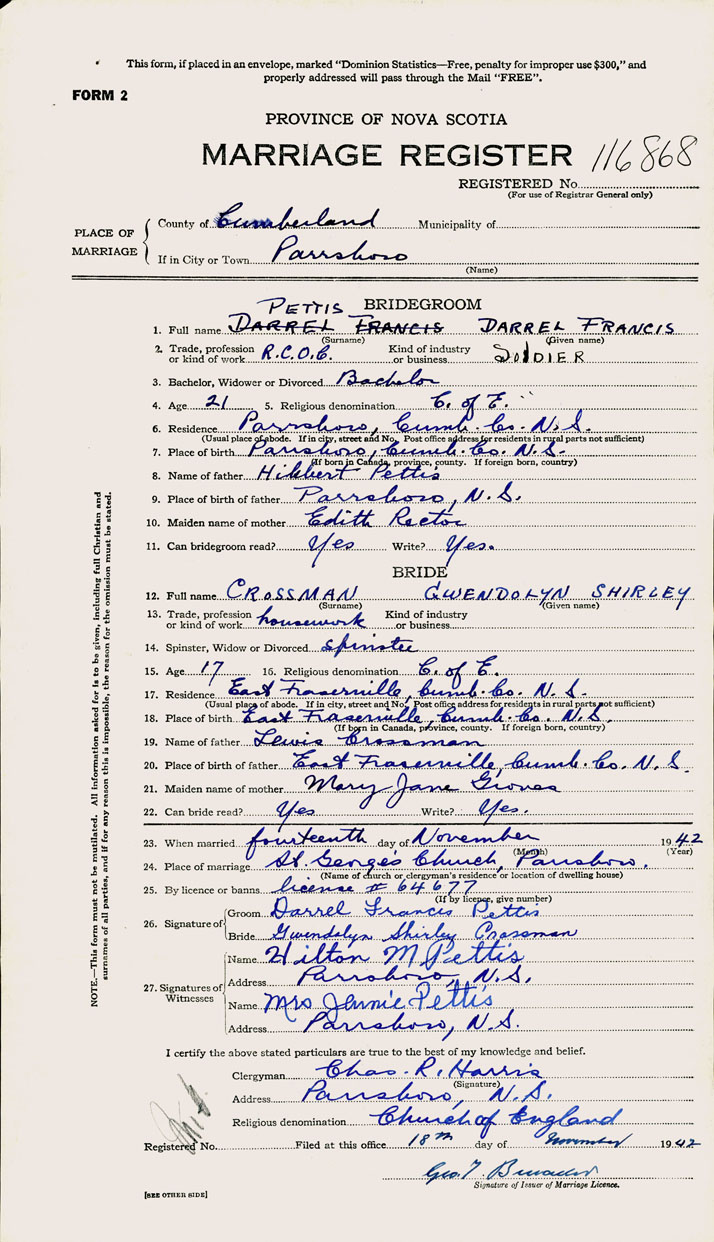 This form, if placed in an envelope, marked “Dominion Statistics—Free, penalty for improper use $300,” and
properly addressed will pass through the Mail “FREE”.
FORM 2
PROVINCE OF NOVA SCOTIA
MARRIAGE REGISTER 116868
REGISTERED No.
(For use of Registrar General only)
PLACE OF MARRIAGE
County of Cumberland Municipality of
If in City or Town Parrsboro
(Name)
PETTIS BRIDEGROOM
1. Full name DARREL FRANCIS DARREL FRANCIS
(Surname) (Given name)
2. Trade, profession or kind of work R.C.O.C. Kind of industry or business SOLDIER
3. Bachelor, Widower or Divorced Bachelor
4. Age 21 5. Religious denomination C. of E.
6. Residence Parrsboro, Cumb. Co. N.S.
(Usual place of abode. If in city, street and No. Post office address for residents in rural parts not sufficient)
7. Place of birth Parrsboro, Cumb. Co. N.S.
(If born in Canada, province, county. If foreign born, country)
8. Name of father Hibbert Pettis
9. Place of birth of father Parrsboro, N.S.
10. Maiden name of mother Edith Rector
11. Can bridegroom read? Yes Write? Yes.
BRIDE
12. Full name CROSSMAN GWENDOLYN SHIRLEY
(Surname) (Given name)
13. Trade, profession or kind of work housework Kind of industry or business
14. Spinster, Widow or Divorced spinster
15. Age 17 16. Religious denomination C. of E.
17. Residence East Fraserville, Cumb. Co. N.S.
(Usual place of abode. If in city, street and No. Post office address for residents in rural parts not sufficient)
18. Place of birth East Fraserville, Cumb. Co. N.S.
(If born in Canada, province, county. If foreign born, country)
19. Name of father Lewis Crossman
20. Place of birth of father East Fraserville, Cumb. Co. N.S.
21. Maiden name of mother Mary Jane Groves
22. Can bride read? Yes Write? Yes.
23. When married fourteenth day of November 1942
(Month) (Year)
24. Place of marriage St. George's Church, Parrsboro.
(Name of church or clergyman's residence or location of dwelling house)
25. By licence or banns license # 64677
(If by licence, give number)
26. Signature of
Groom Darrel Francis Pettis
Bride Gwendolyn Shirley Crossman
27. Signatures of Witnesses
Name Hilton M Pettis
Address Parrsboro, N.S.
Name Mrs Jennie Pettis
Address Parrsboro, N.S.
I certify the above stated particulars are true to the best of my knowledge and belief.
Clergyman Chas. R. Harris
(Signature)
Address Parrsboro, N.S.
Religious denomination Church of England
Registered No. Filed at this office 18th day of November 1942
Geo. T.
Signature of Issuer of Marriage Licence.
[SEE OTHER SIDE]
NOTE.—This form must not be mutilated. All information asked for is to be given, including full Christian and
surnames of all parties, and if for any reason this is impossible, the reason for the omission must be stated.